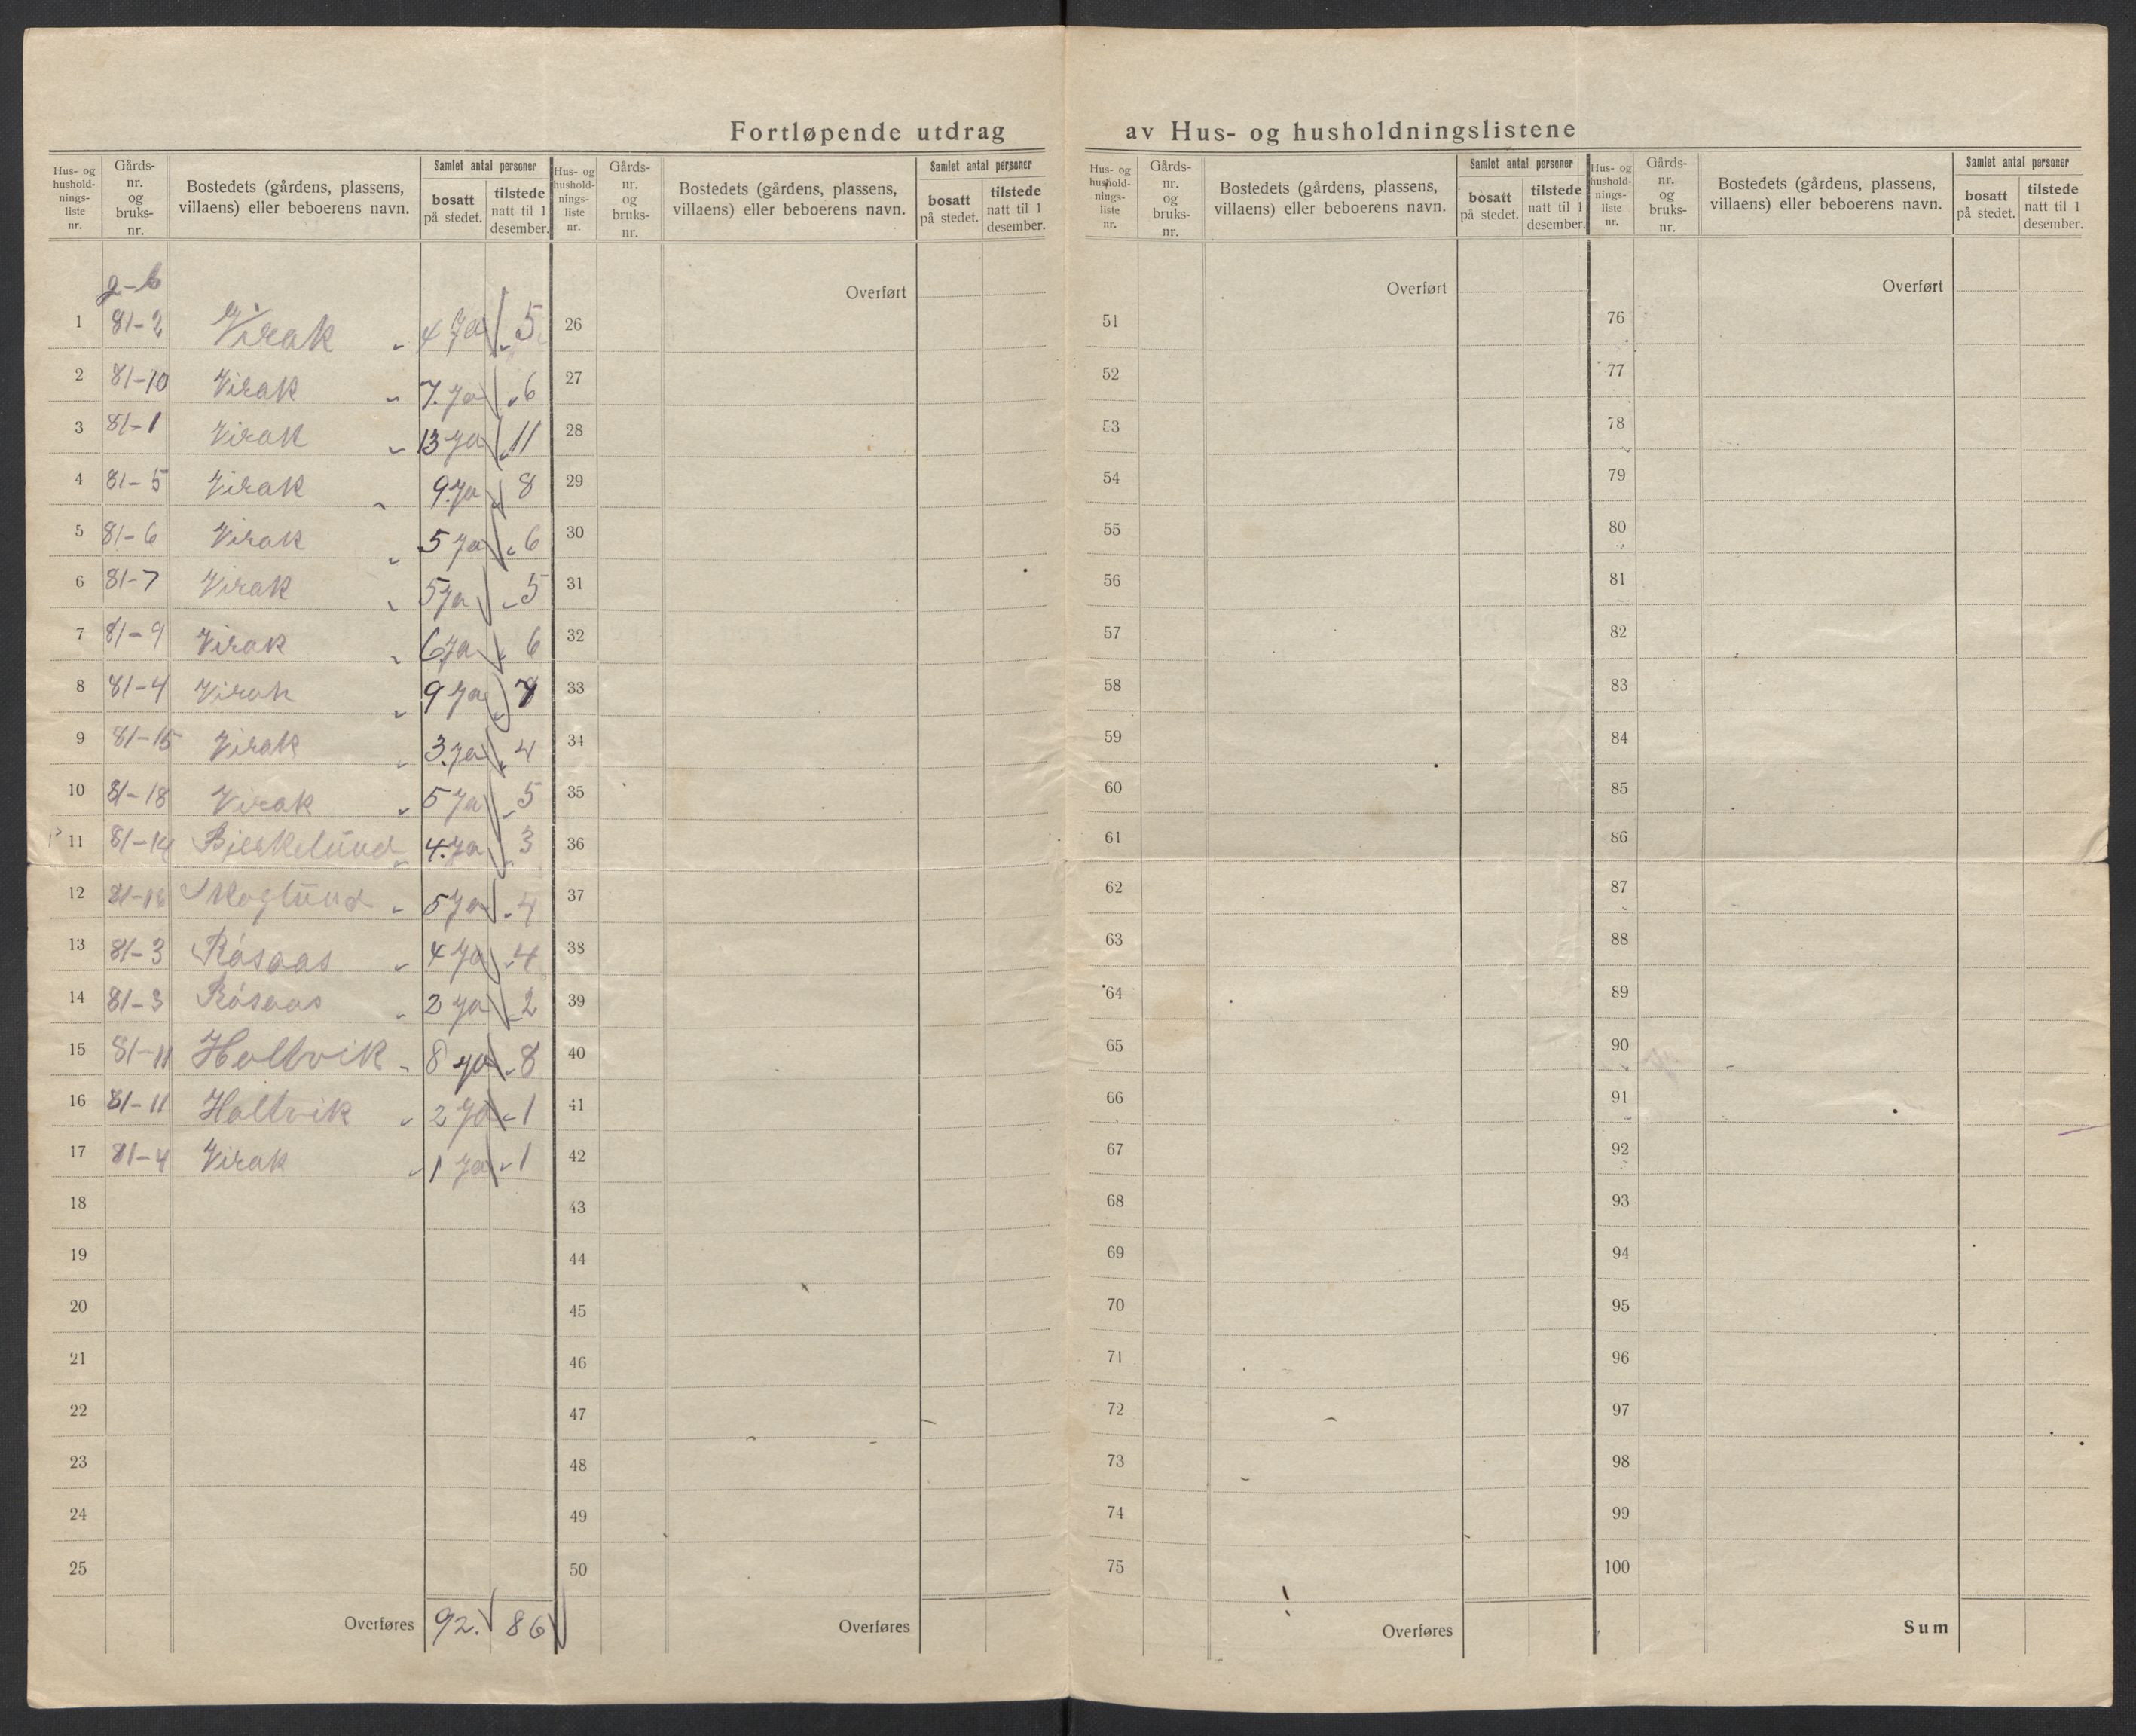 Fortløpende utdrag av Hus- og husholdningslistene
Hus- og hushold- nings- liste nr.
Gårds- nr. og bruks- nr.
Bostedets (gårdens, plassens, villaens) eller beboerens navn.
Samlet antal personer
bosatt på stedet.
tilstede natt til 1 desember.
Hus- og hushold- nings- liste nr.
Gårds- nr. og bruks- nr.
Bostedets (gårdens, plassens, villaens) eller beboerens navn.
Samlet antal personer
bosatt på stedet.
tilstede natt til 1 desember.
Hus- og hushold- nings- liste nr.
Gårds- nr. og bruks- nr.
Bostedets (gårdens, plassens, villaens) eller beboerens navn.
Samlet antal personer
bosatt på stedet.
tilstede natt til 1 desember.
Hus- og hushold- nings- liste nr.
Gårds- nr. og bruks- nr.
Bostedets (gårdens, plassens, villaens) eller beboerens navn.
Samlet antal personer
bosatt på stedet.
tilstede natt til 1 desember.
g-b
1 81-2 Virak 4 Ja 5
2 81-10 Virak 7. Ja 6
3 81-1 Virak 13 Ja 11
4 81-5 Virak 9. Ja 8
5 81-6 Virak 5 Ja 6
6 81-7 Virak 5 Ja 5
7 81-9 Virak 6 Ja 6
8 81-4 Virak 9 Ja 7
9 81-15 Virak 3. Ja 4
10 81-18 Virak 5 Ja 5
11 81-14 Bjerkelund 4. Ja 3
12 81-16 Skoglund 5 Ja 4
13 81-3 Råsaas 4 Ja 4
14 81-3 Råsaas 2 Ja 2
15 81-11 Holtvik 8 Ja 8
16 81-11 Holtvik 2 Ja 1
17 81-4 Virak 1 Ja 1
18
19
20
21
22
23
24
25
Overføres 92. 86
Overført
26
27
28
29
30
31
32
33
34
35
36
37
38
39
40
41
42
43
44
45
46
47
48
49
50
Overføres
Overført
51
52
53
54
55
56
57
58
59
60
61
62
63
64
65
66
67
68
69
70
71
72
73
74
75
Overføres
Overført
76
77
78
79
80
81
82
83
84
85
86
87
88
89
90
91
92
93
94
95
96
97
98
99
100
Sum